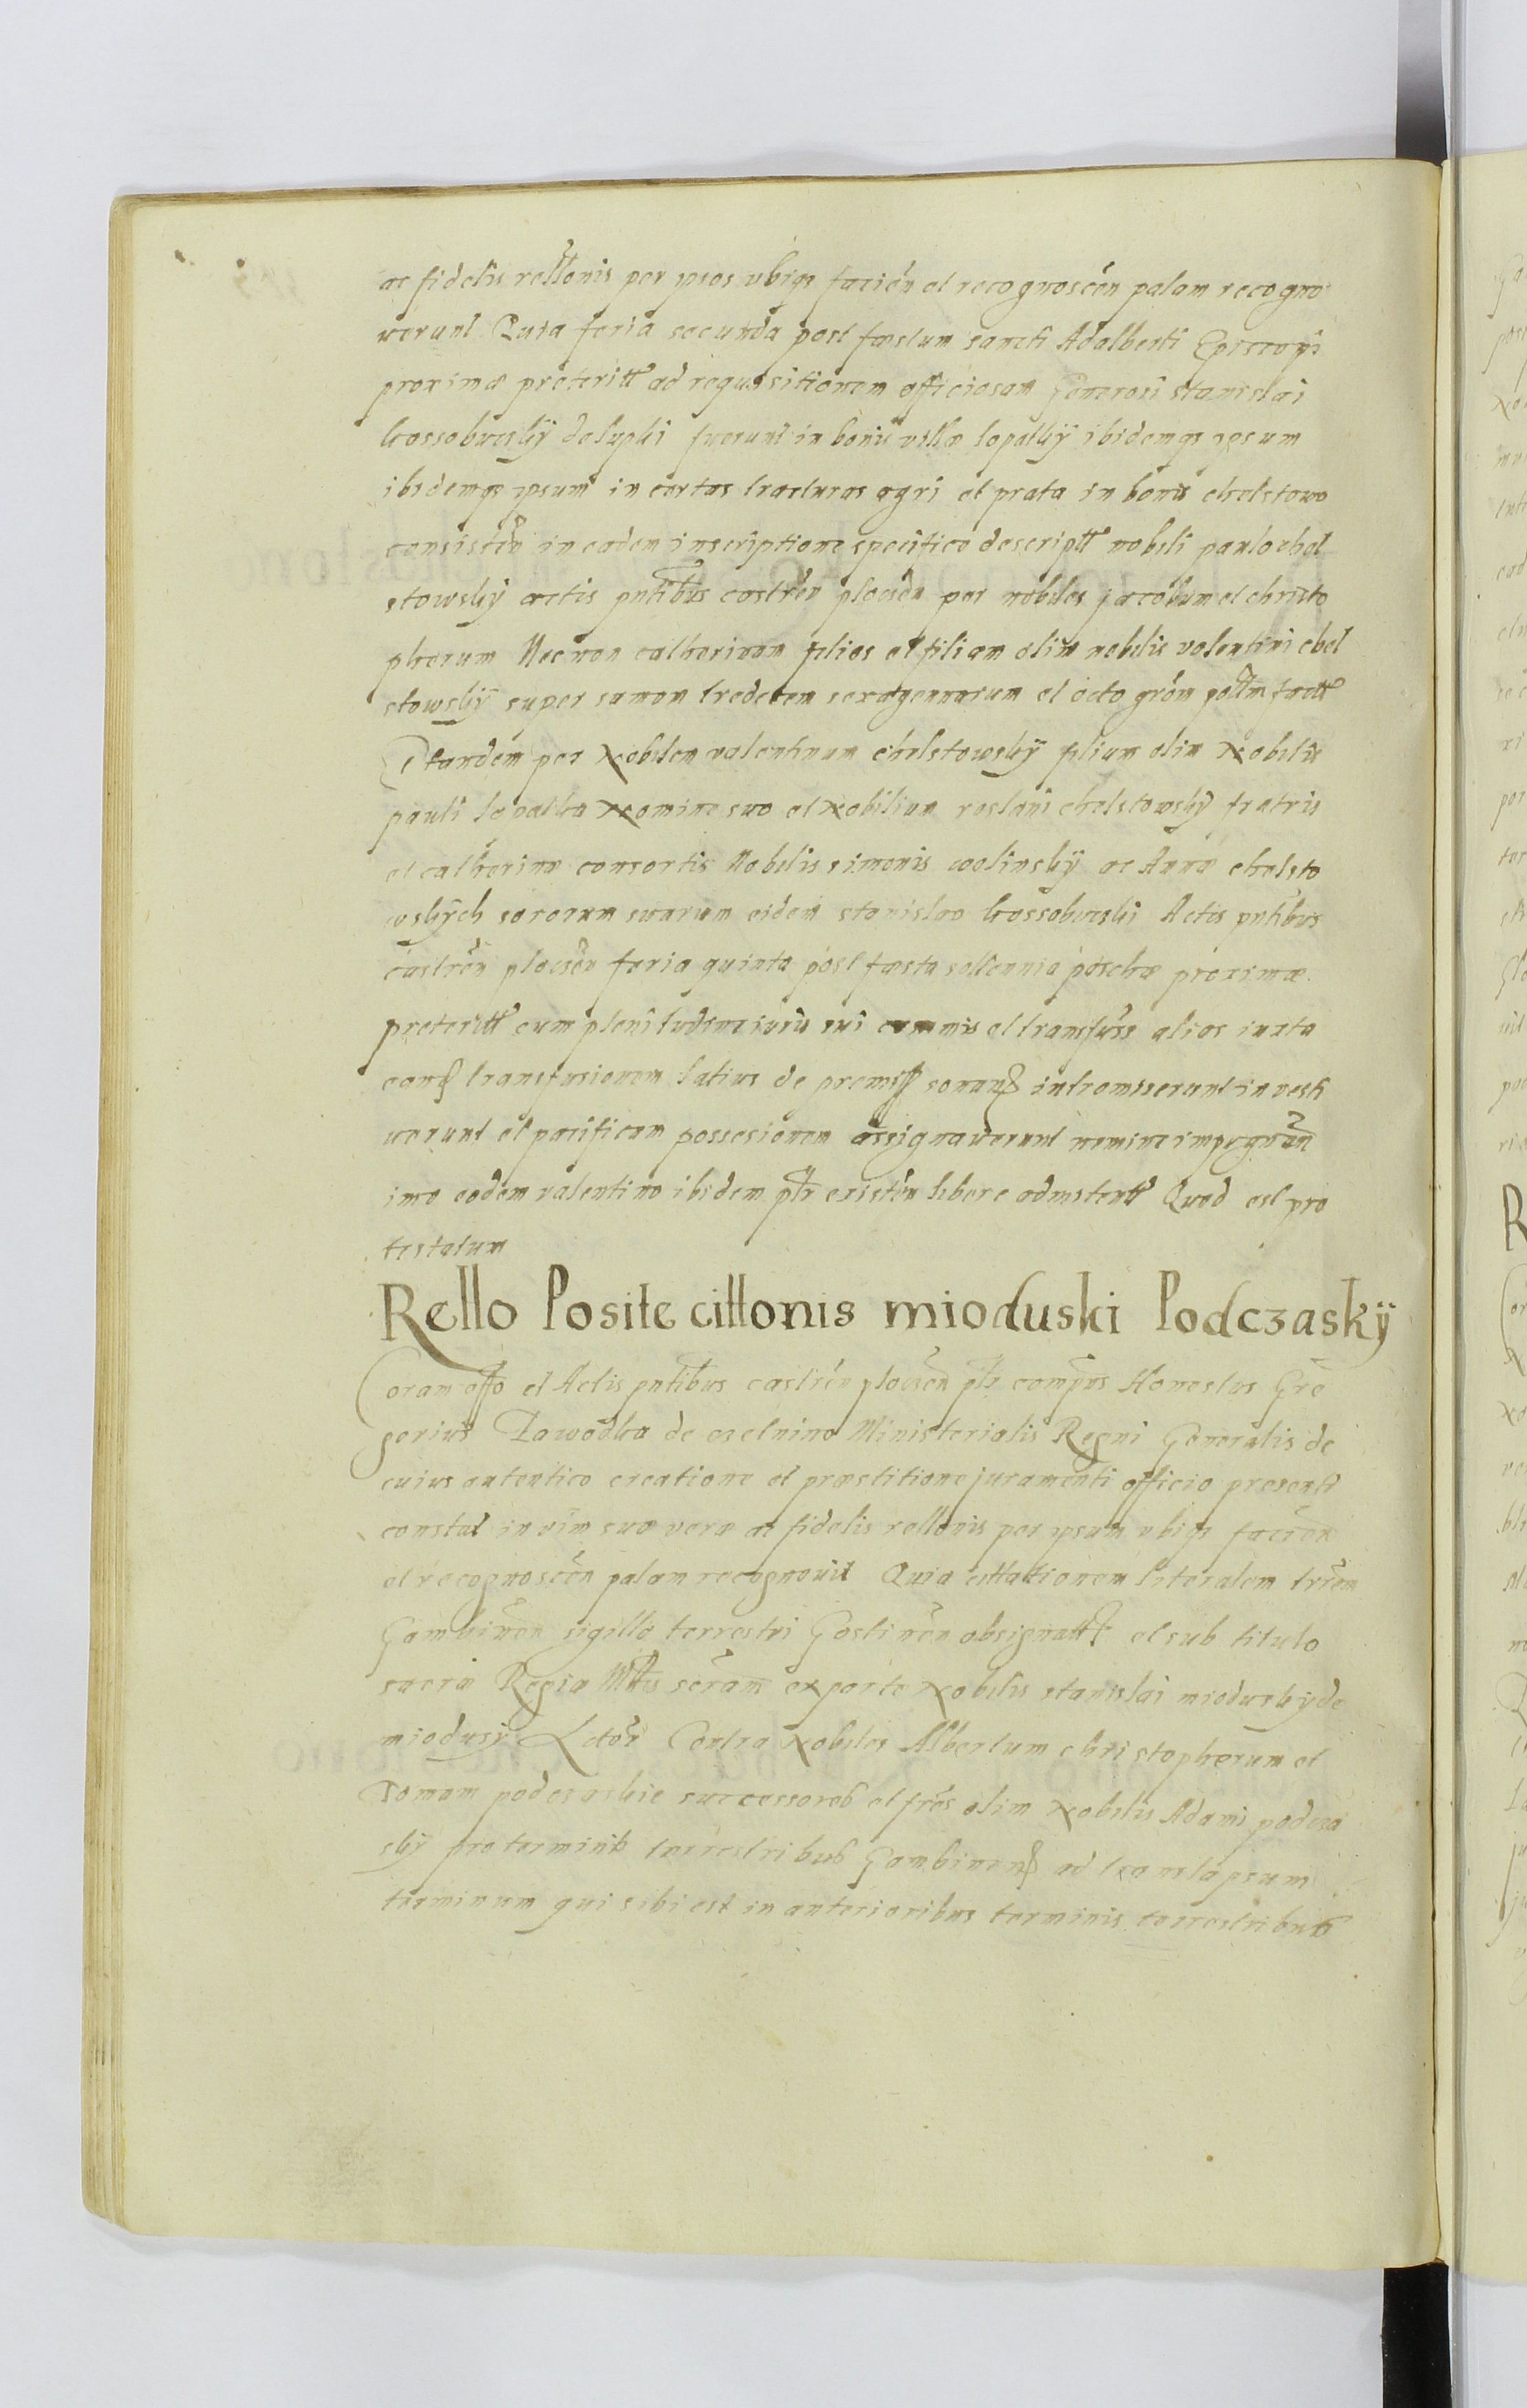 ac fidelis rellonis per ipsos ubiqs facien et recognoscen palam recogno
verunt Quia feria secunda post fæstum sancti Adalberti Episcopi
proximæ preteritt ad requisitionem officiosam Generosi Stanislai
kossobuczkÿ de lupki fuerunt in bonis villæ lopatkÿ ibidemqs ipsum
ibidemqs ipsum in certas tracturas agri et prata in bonis chelstowo
consisten in eadem inscriptione specifico descriptt nobili paulo chel
stowskÿ actis pntibus castren plocien per nobiles jacobum et christo
pherum Nec non catherinam filios et filiam olim nobilis valentini chel
stowskÿ super samam tredecem sexagennarum et octo gron polm factt
Et tandem per Nobilem valentinum chelstowskÿ filium olim Nobilis
pauli lopatka Nomine suo et Nobilium roslani chelstowskÿ fratris
et catherinæ consortis Nobilis simonis wolinskÿ ac Annæ chelsto
wskÿch sororum suarum eidem stanislao kossobuczki Actis pntibus
castren plocien feria quinta post fæsta sollennia paschæ proximæ
preteritt cum plenitudine iuris sui et transfuss alios iuxta
transfusionem latius de premiss sonan intromiserunt investi
verunt et pacificam possesionem assignaverunt nemine impugnan
imo eodem valentino ibidem pltr existen libere admitentt Quod est pro
testatum
Rello Posite cittonis mioduski Podczaskÿ
Coram offo et Actis pntibus castren plocien pltr compus Honestus Gre
gorius Dawodka de Ministerialis Regni Generalis de
cuius autentico creatione et præstitione juramenti officio presenti
constat in vim suæ veræ ac fidelis rellonis per ipsum ubiqs facien
et recognoscen palam recognovit Quia cittationem literalem trrem
Gambinen sigillo terrestri Gostinen obsignatt et sub titulo
sacræ Regiæ Mttis ex parte Nobilis stanislai mioduskÿ de
miodusÿ Actor Contra Nobiles Albertum christopherum et
Tomam podczaskie successores et fres olim Nobilis Adami podcza
skÿ pro terminis terrestribus Gambinen ad translapsum
terminum qui sibi est in anterioribus terminis terrestribus